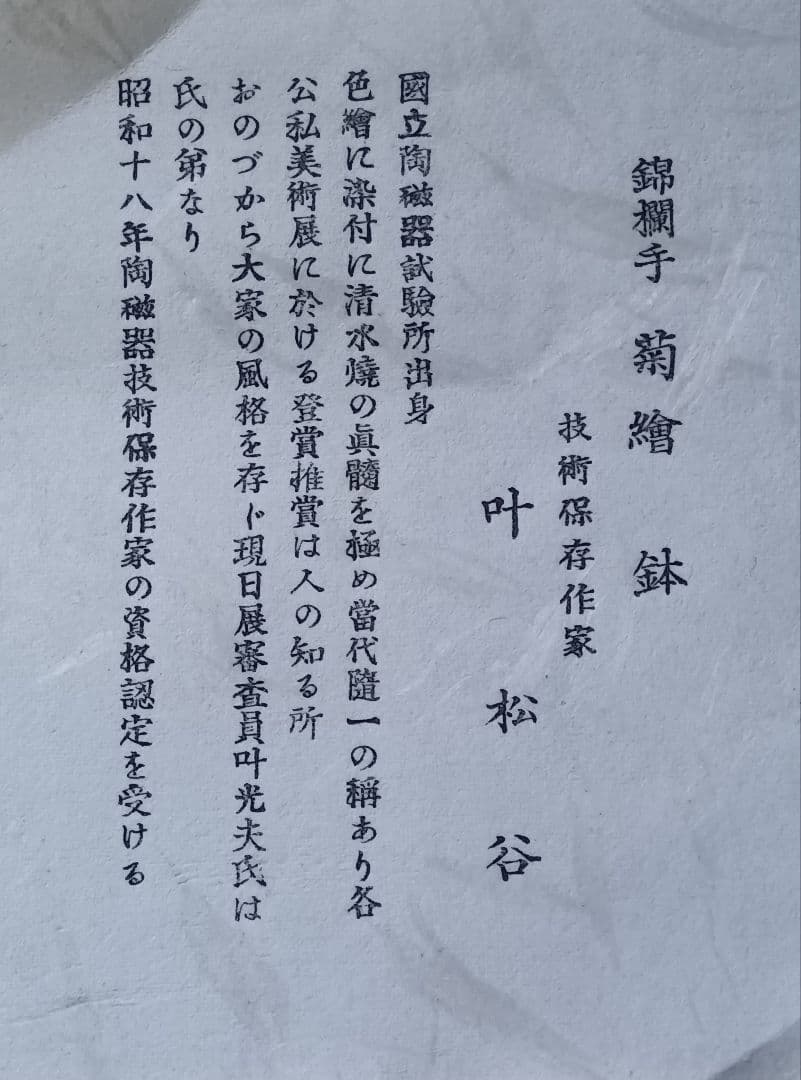 錦欄手 菊繪鉢
技術保存作家
叶松谷
國立陶磁器試驗所出身
色繪に染付に清水燒の眞髓を極め當代隨一の稱あり各
公私美術展に於ける登賞推賞は人の知る所
おのづから大家の風格を存ド現日展審査員叶光夫氏は
氏の弟なり
昭和十八年陶磁器技術保存作家の資格認定を受ける